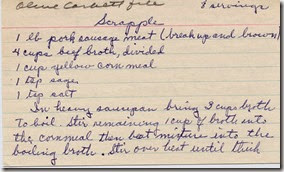 Olive Corbett file 8 servings
Scrapple
1 lb pork sausage meat (break up and brown)
4 cups beef broth, divided
1 cup yellow cornmeal
1 tsp sage
1 tsp salt
In heavy saucepan bring 3 cups broth
to boil. Stir remaining 1 cup of broth into
the cornmeal then beat mixture into the
boiling broth. Stir over heat until thick